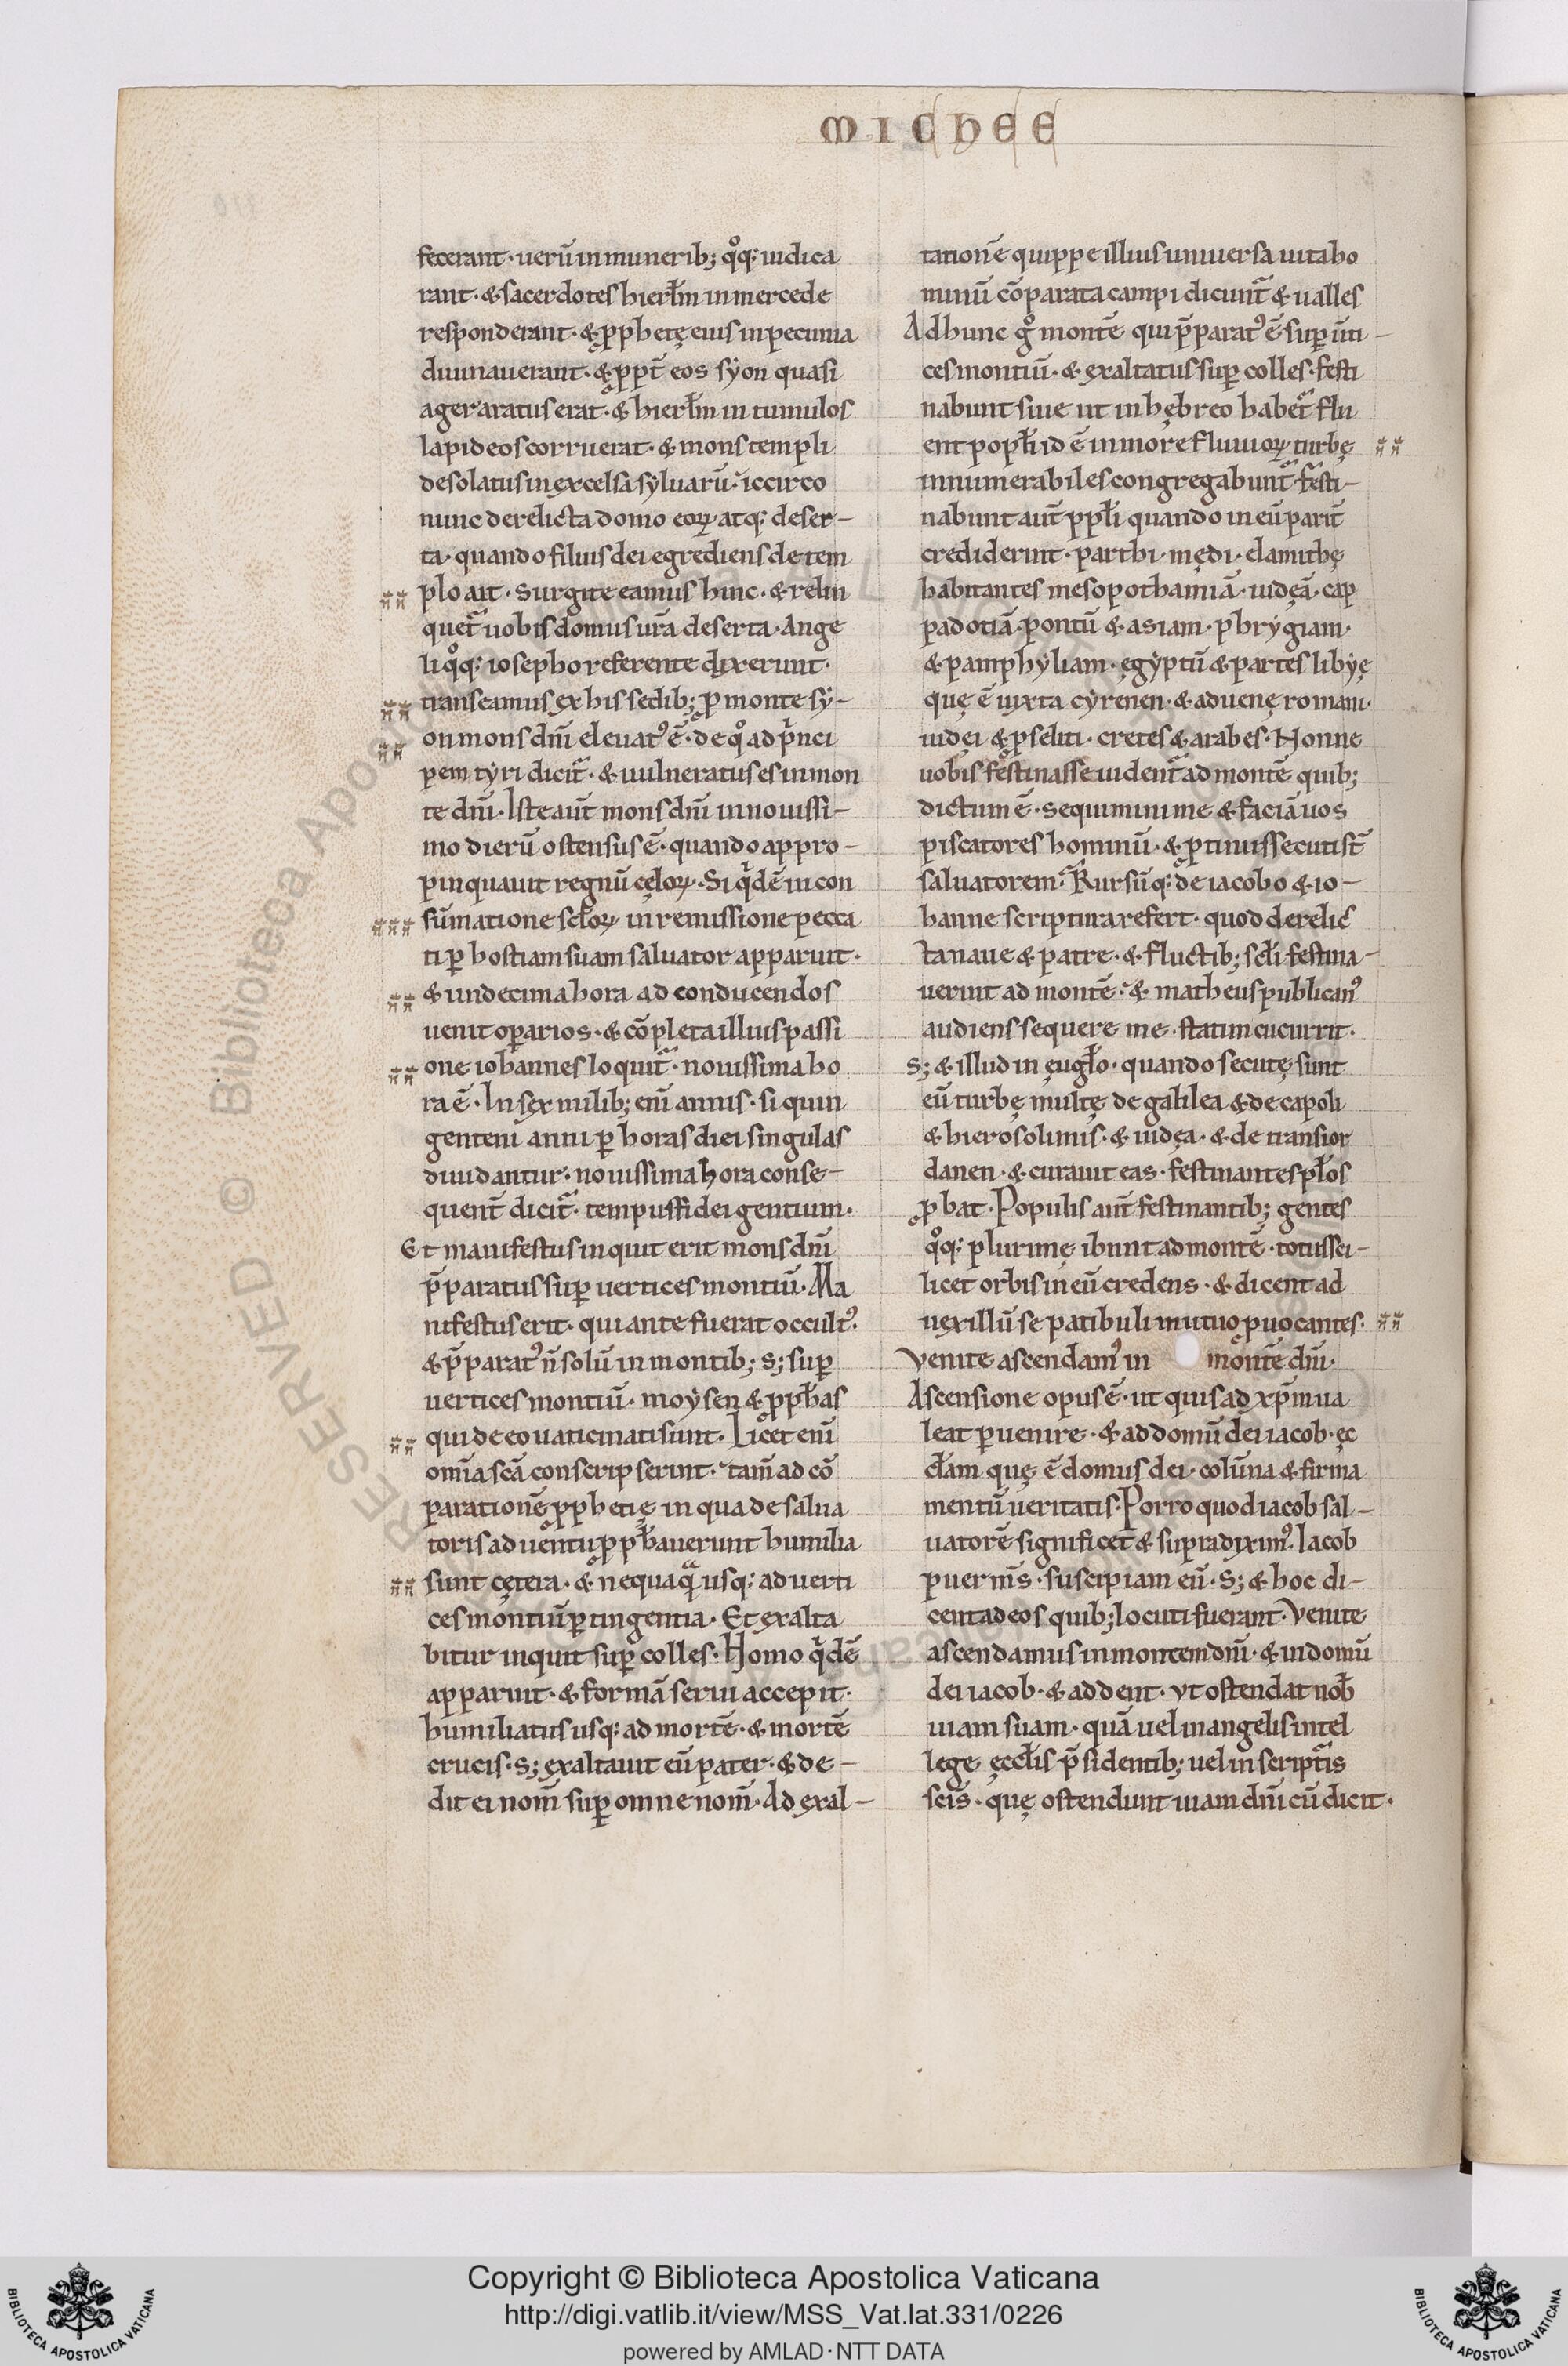 MICHEE
fecerant· uerū in munerib; qͦq; iudica
rant· & sacerdotes hierłm in mercede
responderant· & ꝓphetę eius in pecunia
diuinauerant· & ꝓpt̄ eos sẏon quasi
ager aratus erat· & hierłm in tumulos
lapideos corruerat· & mons templi
desolatus in excelsa sẏluarū· iccirco
nunc derelicta domo eoꝝ atq; deser–
ta· quando filius dei egrediens de tem
plo ait· Surgite eamus hinc· & relin
quet᷑ uobis domus ur̄a deserta· Ange
li qͦq; iosepho referente dixerunt·
transeamus ex his sedib; ꝓ monte sẏ–
on mons dn̄i eleuatꝰ ē· de qͦ ad pͥnci
pem tẏri dicit᷑· & uulneratus es in mon
te dn̄i· Iste aut̄ mons dn̄i in nouissi–
mo dierū ostensus ē· quando appro–
pinquauit regnū cęloꝝ· Si qͥdē in con
sūmatione sc̄loꝝ in remissione pecca
ti ꝑ hostiam suam saluator apparuit·
& undecima hora ad conducendos
uenit oꝑarios· & cōpleta illius passi
one iohannes loquit᷑· nouissima ho
ra ē· In sex milib; eni᷑ annis· si quin
genteni anni ꝑ horas diei singulas
diuidantur· nouissima hora conse–
quent̄ dicit᷑· tempus fidei gentium·
Et manifestus inquit erit mons dn̄i
p̄paratus suꝑ uertices montiū· Ma
nifestus erit· qui ante fuerat occultꝰ·
& p̄paratꝰ n̄ solū in montib; s; suꝑ
uertices montiū· moẏsen & ꝓph̄as
qui de eo uaticinati sunt· Licet eni᷑
om̄ia sc̄a conscripserint· tam̄ ad cō
parationē ꝓphetię in qua de salua
toris aduentu ꝓph̄auerunt humilia
sunt cętera· & nequaqᷓ usq; ad uerti
ces montiū ꝑtingentia· Et exalta
bitur inquit suꝑ colles· Homo qͥdē
apparuit· & formā serui accepit·
humiliatus usq; ad mortē· & mortē
crucis· s; exaltauit eū pater· & de–
dit ei nom̄ suꝑ omne nom̄· Ad exal–
tationē quippe illius uniuersa uita ho
minū cōparata campi dicunt᷑ & ualles
Ad hunc gͦ montē qui p̄paratꝰ ē suꝑ ūti–
ces montiū· & exaltatus suꝑ colles· festi
nabunt siue ut in hębreo habet᷑ flu
ent popłi id ē in more fluuioꝝ turbę
innumerabiles congregabunt᷑· festi–
nabunt aut̄ ppłi quando in eū parit̄
crediderint· parthi· mędi· elamithę
habitantes mesopothamiā· iudęā· cap
padotiā· pontū & asiam· phrẏgiam·
& pamphẏliam· ęgẏptū & partes libẏę
quę ē iuxta cẏrenen· & aduenę romani·
iudęi & ꝓseliti· cretes & arabes· Nonne
uobis festinasse uident᷑ ad montē quib;
dictum ē· Sequimini me & faciā uos
piscatores hominū· & ꝓtinus secuti st̄
saluatorem· Rursūq; de iacobo & io–
hanne scriptura refert· quod derelic
ta naue & patre· & fluctib; sc̄łi festina–
uerint ad montē· & matheus publicanꝰ
audiens sequere me· statim cucurrit·
S; & illud in ęugło· quando secutę sunt
eū turbę multę de galilea & decapoli
& hierosolimis· & iudęa· & de transior
danen· & curauit eas· festinantes płos
ꝓbat· Populis aut̄ festinantib; gentes
qͦq; plurimę ibunt ad montē· totus sci–
licet orbis in eū credens· & dicent ad
uexillū se patibuli mutuo ꝓuocantes·
Venite ascendamꝰ in montē dn̄i·
Ascensione opus ē· ut quis ad xp̄m ua
leat ꝑuenire· & ad domū dei iacob· ęc
cłam quę ē domus dei· colūna & firma
mentū ueritatis· Porro quod iacob sal–
uatorē significet & supra diximꝰ· Iacob
puer ms̄· suscipiam eū· S; & hoc di–
cent ad eos quib; locuti fuerant· Venite
ascendamus in montem dn̄i· & in domū
dei iacob· & addent· Vt ostendat nob̄
uiam suam· quā uel in angelis intel
lege ęcc̄łis p̄sidentib; uel in script᷑is
sc̄is· quę ostendunt uiam dn̄i cū dicit·
RESERVED © Biblioteca Apostolica Vaticana
Copyright © Biblioteca Apostolica Vaticana
http://digi.vatlib.it/view/MSS_Vat.lat.331/0226
powered by AMLAD·NTT DATA
BIBLIOTECA APOSTOLICA VATICANA
BIBLIOTECA APOSTOLICA VATICANA